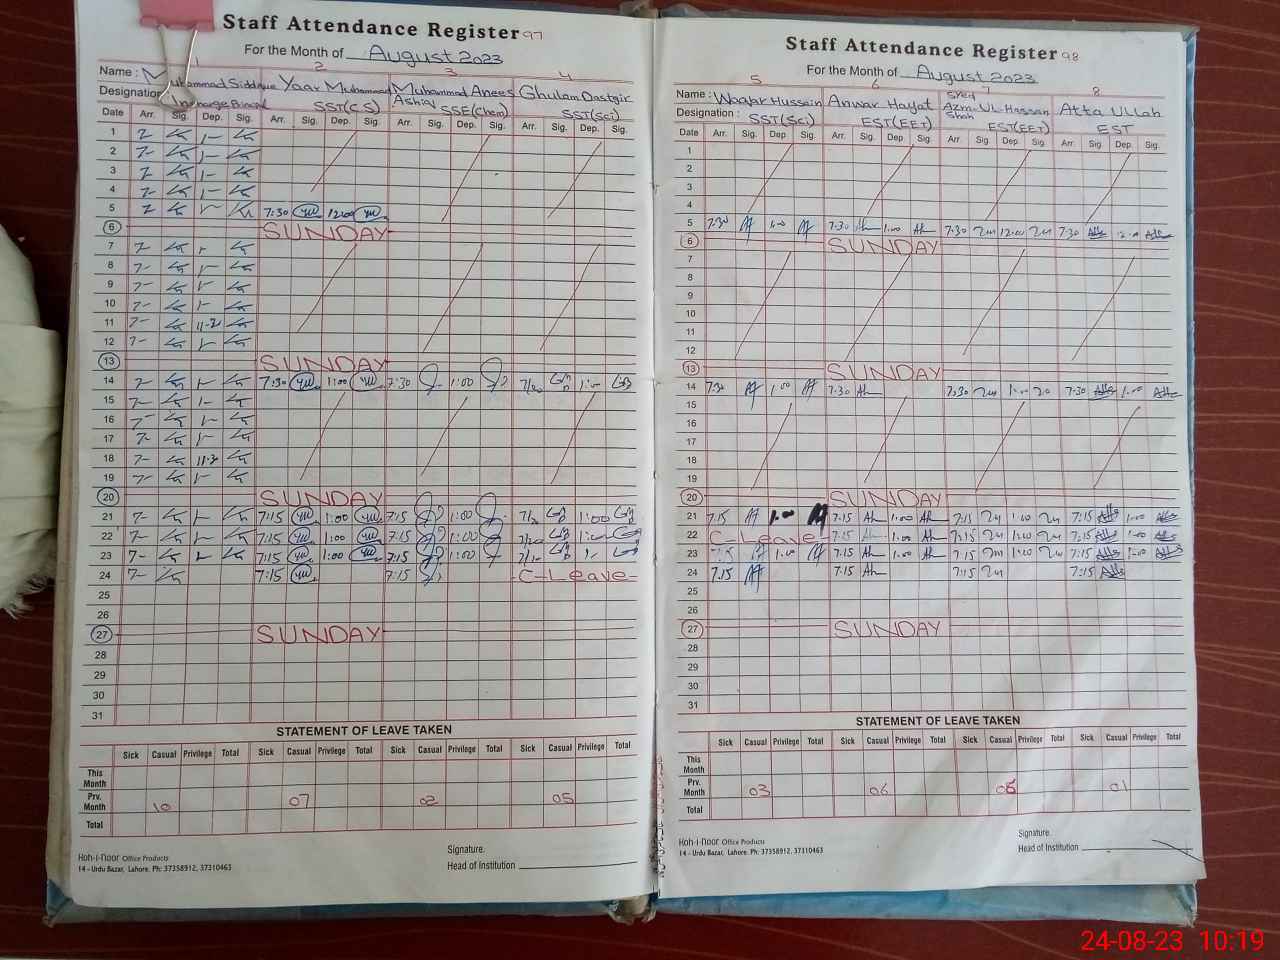 Staff Attendance Register 97
For the Month of August 2023
1 2 3 4
Name : Muhammad Siddique Yaar Muhammad Muhammad Anees Ashraf Ghulam Dastgir
Designation Incharge Principal SST(CS) SSE(Chem) SST(Sci)
Date Arr. Sig. Dep. Sig. Arr. Sig. Dep. Sig. Arr. Sig. Dep. Sig. Arr. Sig. Dep. Sig.
1 7- 1-
2 7- 1-
3 7- 1-
4 7- 1-
5 7 1- 7:30 12:00
6 SUNDAY
7 7- 1-
8 7- 1-
9 7- 1-
10 7- 1-
11 7- 11-30
12 7- 1-
13 SUNDAY
14 7- 1- 7:30 1:00 7:30 1:00 7/30 1:00
15 7- 1-
16 7- 1-
17 7- 1-
18 7- 11-30
19 7- 1-
20 SUNDAY
21 7- 1- 7:15 1:00 7:15 1:00 1:00
22 7- 1- 7:15 1:00 7:15 1:00
23 7- 1- 7:15 1:00 7:15 1:00 1-
24 7- 7:15 7:15 C-Leave
25
26
27 SUNDAY
28
29
30
31
STATEMENT OF LEAVE TAKEN
Sick Casual Privilege Total Sick Casual Privilege Total Sick Casual Privilege Total Sick Casual Privilege Total
This Month
Prv. Month 10 07 02 05
Total
Koh-i-Noor Office Products
14 - Urdu Bazar, Lahore. Ph: 37358912, 37310463
Signature.
Head of Institution
Staff Attendance Register 98
For the Month of August 2023
5 6 7 8
Name : Waqar Hussein Anwar Hayat Syed Azmat UL-Hassan Shah Atta ULLah
Designation : SST(Sci) EST(EET) EST(EET) EST
Date Arr. Sig. Dep. Sig. Arr. Sig. Dep. Sig. Arr. Sig. Dep. Sig. Arr. Sig. Dep. Sig.
1
2
3
4
5 7:30 1:00 7:30 Ah 1:00 Ah 7:30 12:00 7:30 12:00
6 SUNDAY
7
8
9
10
11
12
13 SUNDAY
14 7:30 1:00 7:30 Ah 7:30 1:00 7:30 1:00
15
16
17
18
19
20 SUNDAY
21 7:15 1:00 7:15 Ah 1:00 Ah 7:15 1:00 7:15 1:00
22 C-Leave 7:15 Ah 1:00 Ah 7:15 1:00 7:15 1:00
23 7:15 1:00 7:15 Ah 1:00 Ah 7:15 1:00 7:15 1:00
24 7:15 7:15 Ah 7:15 7:15
25
26
27 SUNDAY
28
29
30
31
STATEMENT OF LEAVE TAKEN
Sick Casual Privilege Total Sick Casual Privilege Total Sick Casual Privilege Total Sick Casual Privilege Total
This Month
Prv. Month 03 06 06 01
Total
Koh-i-Noor Office Products
14 - Urdu Bazar, Lahore. Ph: 37358912, 37310463
Signature.
Head of Institution
24-08-23 10:19